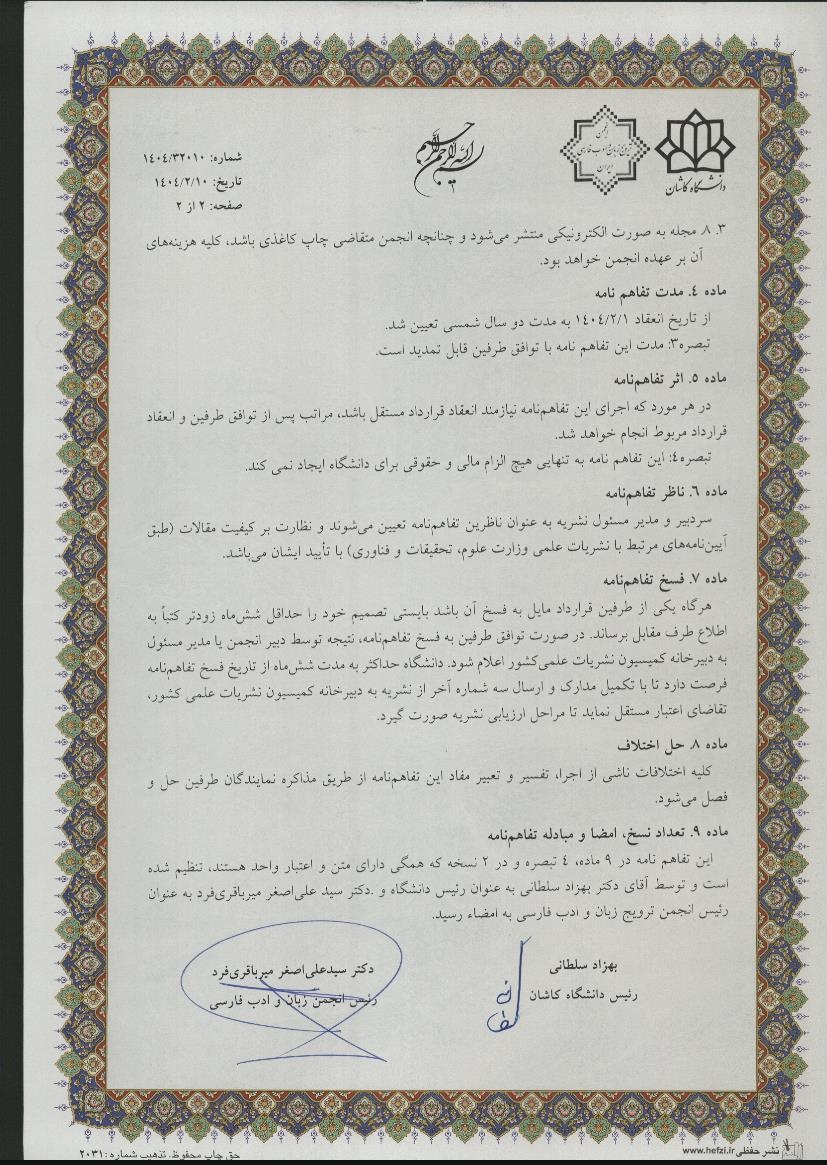 بسم الله الرحمن الرحیم
انجمن
ترویج زبان و ادب فارسی
ایران
دانشگاه کاشان
شماره: ١٤٠٤/٣٢٠١٠
تاریخ: ١٤٠٤/٢/١٠
صفحه: ٢ از ٢
٣. ٨ مجله به صورت الکترونیکی منتشر می‌شود و چنانچه انجمن متقاضی چاپ کاغذی باشد، کلیه هزینه‌های
آن بر عهده انجمن خواهد بود.
ماده ٤. مدت تفاهم نامه
از تاریخ انعقاد ١٤٠٤/٢/١ به مدت دو سال شمسی تعیین شد.
تبصره٣: مدت این تفاهم نامه با توافق طرفین قابل تمدید است.
ماده ٥. اثر تفاهم‌نامه
در هر مورد که اجرای این تفاهم‌نامه نیازمند انعقاد قرارداد مستقل باشد، مراتب پس از توافق طرفین و انعقاد
قرارداد مربوط انجام خواهد شد.
تبصره٤: این تفاهم نامه به تنهایی هیچ الزام مالی و حقوقی برای دانشگاه ایجاد نمی کند.
ماده ٦. ناظر تفاهم‌نامه
سردبیر و مدیر مسئول نشریه به عنوان ناظرین تفاهم‌نامه تعیین می‌شوند و نظارت بر کیفیت مقالات (طبق
آیین‌نامه‌های مرتبط با نشریات علمی وزارت علوم، تحقیقات و فناوری) با تأیید ایشان می‌باشد.
ماده ٧. فسخ تفاهم‌نامه
هرگاه یکی از طرفین قرارداد مایل به فسخ آن باشد بایستی تصمیم خود را حداقل شش‌ماه زودتر کتباً به
اطلاع طرف مقابل برساند. در صورت توافق طرفین به فسخ تفاهم‌نامه، نتیجه توسط دبیر انجمن یا مدیر مسئول
به دبیرخانه کمیسیون نشریات علمی‌کشور اعلام شود. دانشگاه حداکثر به مدت شش‌ماه از تاریخ فسخ تفاهم‌نامه
فرصت دارد تا با تکمیل مدارک و ارسال سه شماره آخر از نشریه به دبیرخانه کمیسیون نشریات علمی کشور،
تقاضای اعتبار مستقل نماید تا مراحل ارزیابی نشریه صورت گیرد.
ماده ٨. حل اختلاف
کلیه اختلافات ناشی از اجرا، تفسیر و تعبیر مفاد این تفاهم‌نامه از طریق مذاکره نمایندگان طرفین حل و
فصل می‌شود.
ماده ٩. تعداد نسخ، امضا و مبادله تفاهم‌نامه
این تفاهم نامه در ٩ ماده، ٤ تبصره و در ٢ نسخه که همگی دارای متن و اعتبار واحد هستند، تنظیم شده
است و توسط آقای دکتر بهزاد سلطانی به عنوان رئیس دانشگاه و .دکتر سید علی‌اصغر میرباقری‌فرد به عنوان
رئیس انجمن ترویج زبان و ادب فارسی به امضاء رسید.
بهزاد سلطانی
رئیس دانشگاه کاشان
دکتر سیدعلی‌اصغر میرباقری‌فرد
رئیس انجمن زبان و ادب فارسی
نشر حفظی www.hefzi.ir
حق چاپ محفوظ. تذهیب شماره: ٢٠٣١